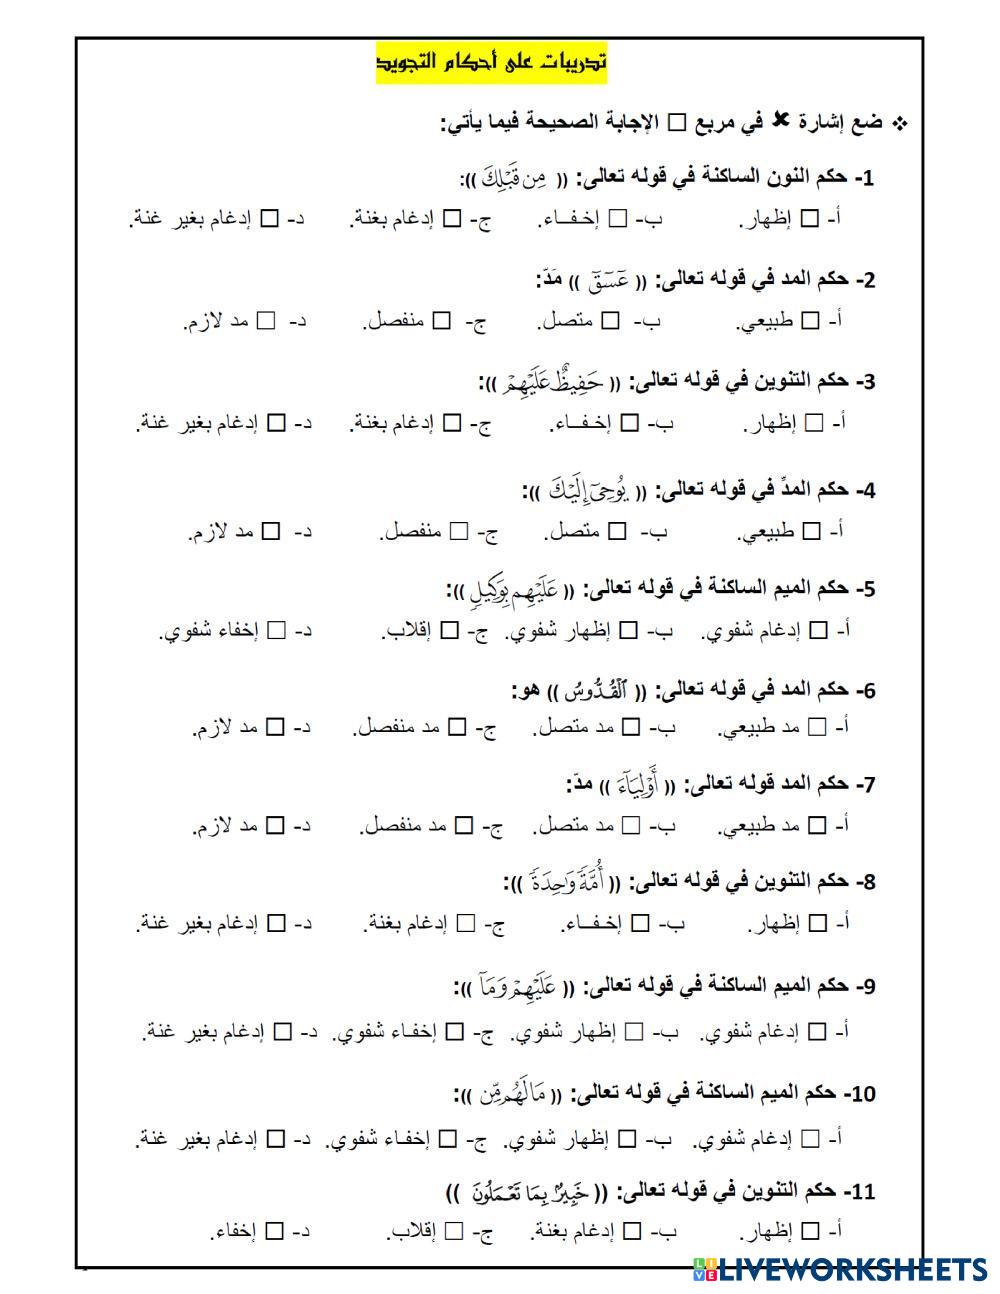 تدريبات على أحكام التجويد
❖ ضع إشارة ✘ في مربع □ الإجابة الصحيحة فيما يأتي:
1- حكم النون الساكنة في قوله تعالى: (( مِن قَبْلِكَ )):
أ- □ إظهار. ب- □ إخفاء. ج- □ إدغام بغنة. د- □ إدغام بغير غنة.
2- حكم المد في قوله تعالى: (( عٓسٓقٓ )) مَدّ:
أ- □ طبيعي. ب- □ متصل. ج- □ منفصل. د- □ مد لازم.
3- حكم التنوين في قوله تعالى: (( حَفِيظٌ عَلَيْهِمْ )):
أ- □ إظهار. ب- □ إخفاء. ج- □ إدغام بغنة. د- □ إدغام بغير غنة.
4- حكم المدِّ في قوله تعالى: (( يُوحِىٓ إِلَيْكَ )):
أ- □ طبيعي. ب- □ متصل. ج- □ منفصل. د- □ مد لازم.
5- حكم الميم الساكنة في قوله تعالى: (( عَلَيْهِم بِوَكِيلٍ )):
أ- □ إدغام شفوي. ب- □ إظهار شفوي. ج- □ إقلاب. د- □ إخفاء شفوي.
6- حكم المد في قوله تعالى: (( ٱلْقُدُّوسُ )) هو:
أ- □ مد طبيعي. ب- □ مد متصل. ج- □ مد منفصل. د- □ مد لازم.
7- حكم المد قوله تعالى: (( أَوْلِيَآءَ )) مدّ:
أ- □ مد طبيعي. ب- □ مد متصل. ج- □ مد منفصل. د- □ مد لازم.
8- حكم التنوين في قوله تعالى: (( أُمَّةً وَٰحِدَةً )):
أ- □ إظهار. ب- □ إخفاء. ج- □ إدغام بغنة. د- □ إدغام بغير غنة.
9- حكم الميم الساكنة في قوله تعالى: (( عَلَيْهِمْ وَمَآ )):
أ- □ إدغام شفوي. ب- □ إظهار شفوي. ج- □ إخفاء شفوي. د- □ إدغام بغير غنة.
10- حكم الميم الساكنة في قوله تعالى: (( مَا لَهُم مِّن )):
أ- □ إدغام شفوي. ب- □ إظهار شفوي. ج- □ إخفاء شفوي. د- □ إدغام بغير غنة.
11- حكم التنوين في قوله تعالى: (( خَبِيرٌۢ بِمَا تَعْمَلُونَ ))
أ- □ إظهار. ب- □ إدغام بغنة. ج- □ إقلاب. د- □ إخفاء.
LIVE LIVEWORKSHEETS